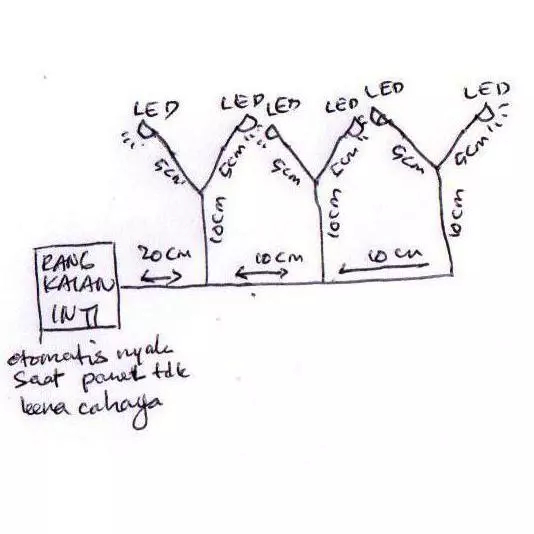 LED LED LED LED LED LED
5cm 5cm 5cm 5cm 5cm 5cm
10cm 10cm 10cm
20cm 10cm 10cm
RANG
KAIAN
INTI
otomatis nyala
saat panel tdk
kena cahaya